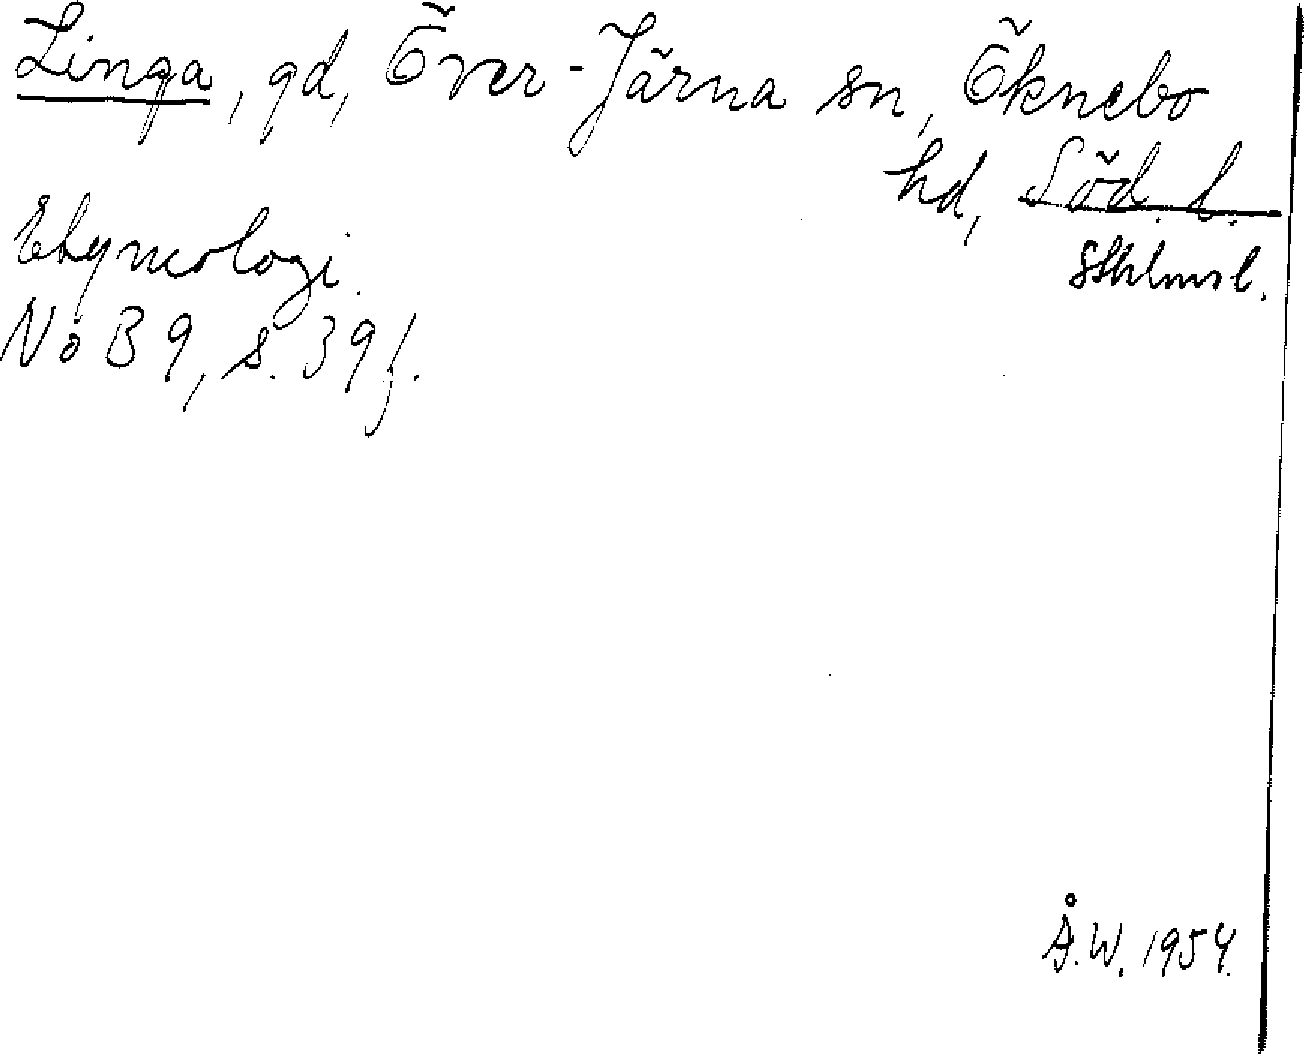 Linga, gd, Över-Järna sn, Öknebo
hd, Söd. l.
Sthlms l.
Etymologi.
NoB 9, s. 39 f.
Å.W. 1954.